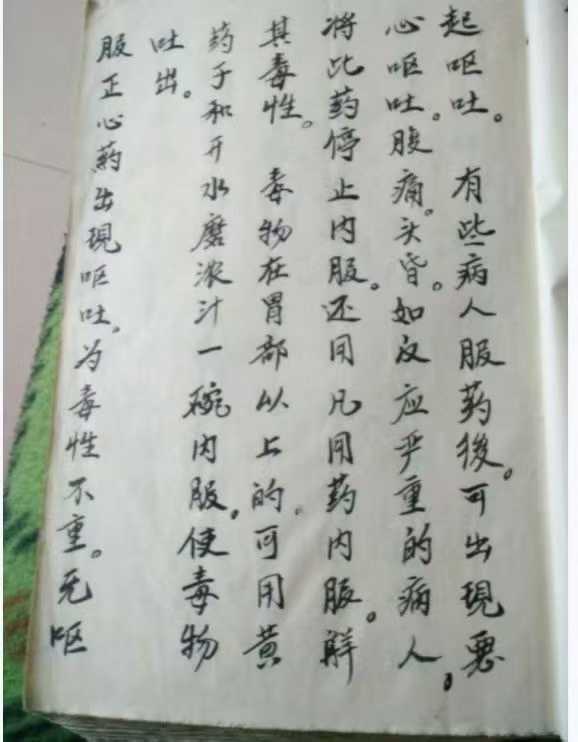 起呕吐。 有些病人服药後。可出現恶
心呕吐。腹痛。头昏。如反应严重的病人。
将此药停止内服。还用凡用药内服。解
其毒性。 毒物在胃部以上的。可用黄
药子和开水磨浓汁一碗内服。使毒物
吐出。
服正心药出現呕吐。为毒性不重。无呕